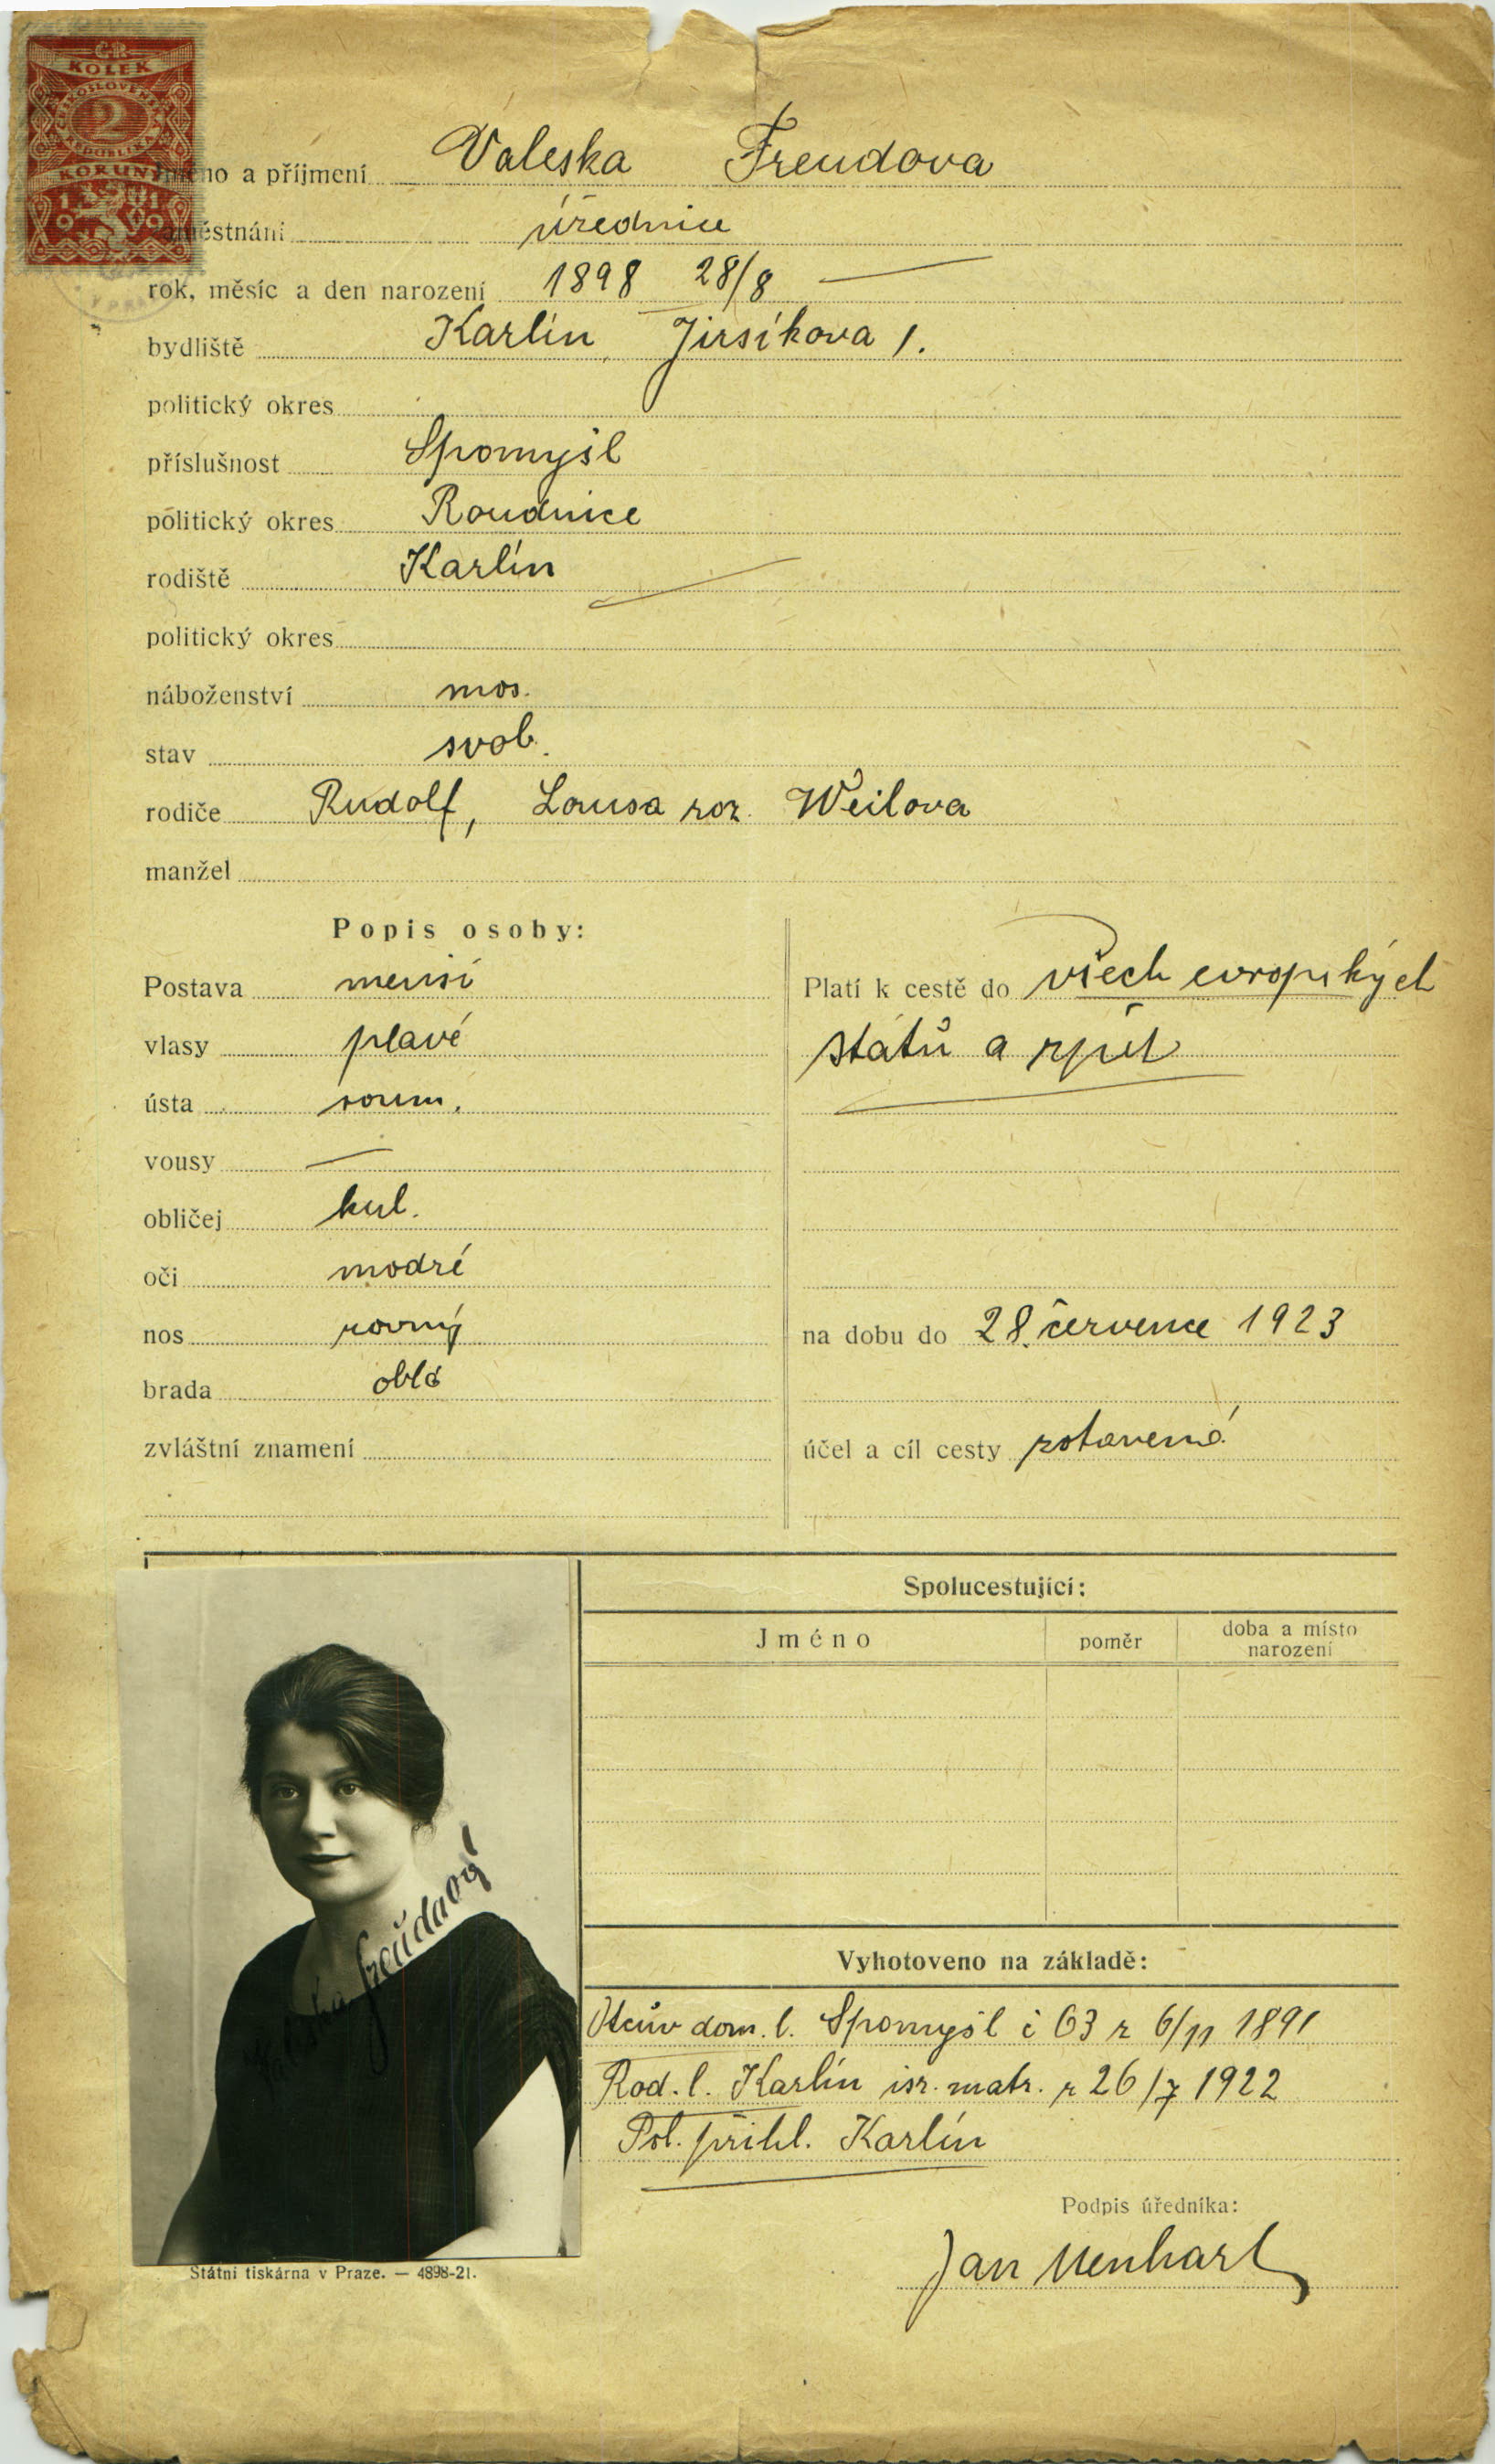 ČR
KOLEK
ČESKOSLOVENSKÁ
2
REPUBLIKA
KORUNY
1919
Jméno a příjmení Valeska Freudova
zaměstnání úřednice
rok, měsíc a den narození 1898 28/8
bydliště Karlín, Jirsíkova 1.
politický okres
příslušnost Spomyšl
politický okres Roudnice
rodiště Karlín
politický okres
náboženství mos.
stav svob.
rodiče Rudolf, Louisa roz. Weilova
manžel
Popis osoby:
Postava menší
vlasy plavé
ústa soum.
vousy —
obličej kul.
oči modré
nos rovný
brada oblá
zvláštní znamení
Platí k cestě do všech evropských
států a zpět
na dobu do 28. července 1923
účel a cíl cesty zotavená
Spolucestující:
Jméno poměr doba a místo
narození
Freudová
Vyhotoveno na základě:
Otcův dom. l. Spomyšl č 63 z 6/11 1891
Rod. l. Karlín isr. matr. z 26/7 1922
Pol. přihl. Karlín
Podpis úředníka:
Jan Menhart
Státní tiskárna v Praze. — 4898-21.